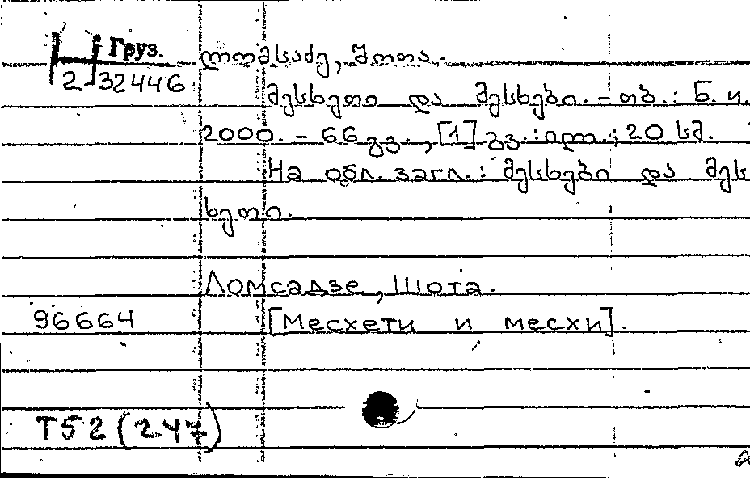 Груз.
2-32446
ლომსაძე, შოთა.
მესხეთი და მესხები. - თბ.: Б. и.
2000. - 66 გვ., [1] გვ.: ილ.; 20 სმ.
На обл. загл.: მესხები და მეს
ხეთი.
Ломсадзе, Шота.
96664
[Месхети и месхи].
Т52(247)